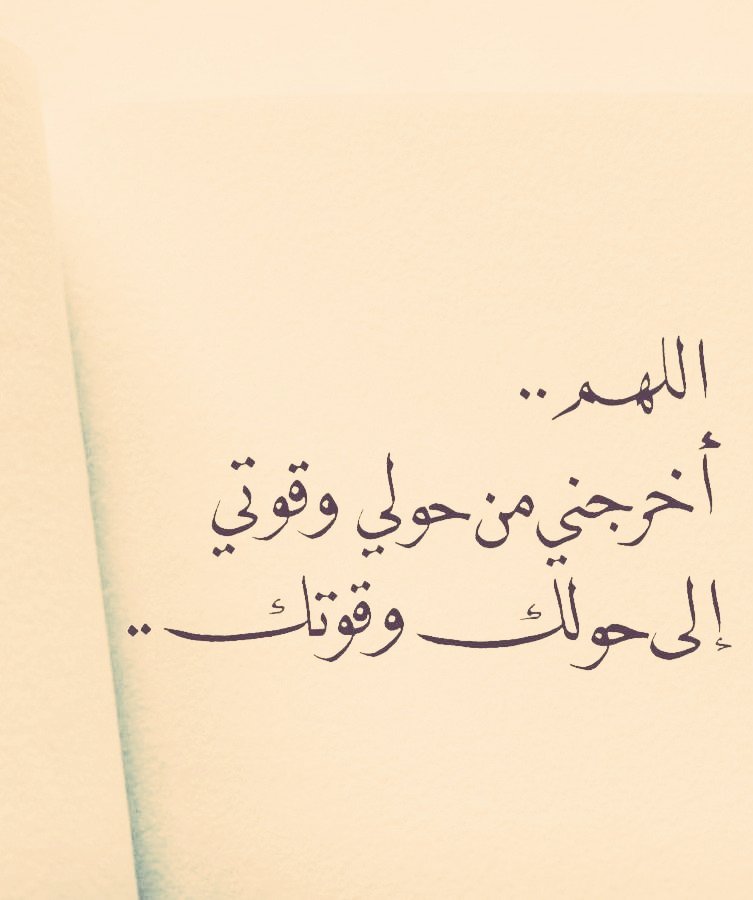 اللهم ..
أخرجني من حولي وقوتي
إلى حولك وقوتك ..